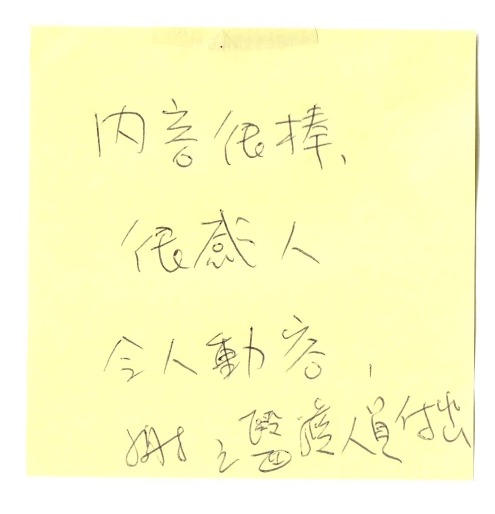 內容很棒、
很感人
令人動容,
謝々醫療人員付出